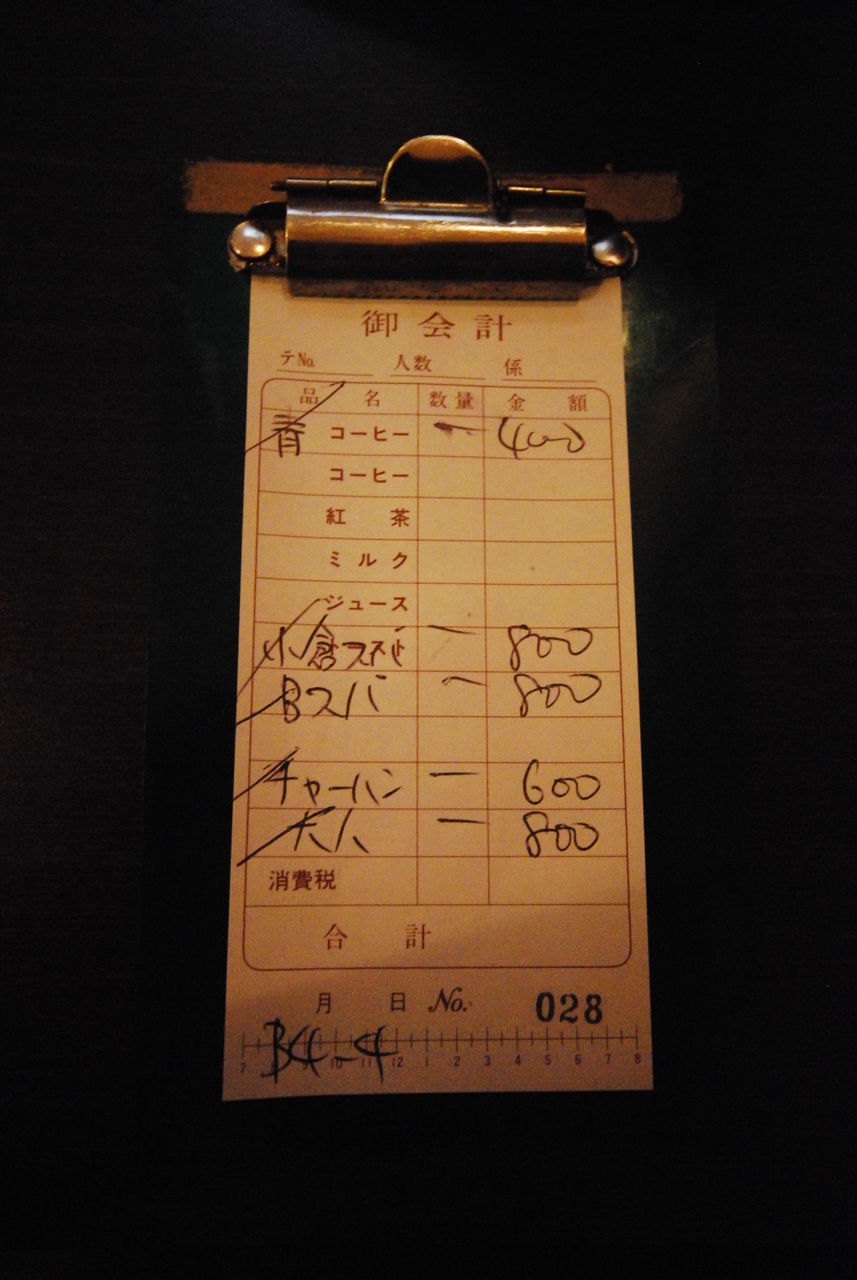 御会計
テNo. 人数 係
品名 数量 金額
青 コーヒー 一 400
コーヒー
紅茶
ミルク
ジュース
小倉スパ 一 800
Bスパ 一 800
チャーハン 一 600
大人 一 800
消費税
合計
月 日 No. 028
B4-4
7 8 9 10 11 12 1 2 3 4 5 6 7 8